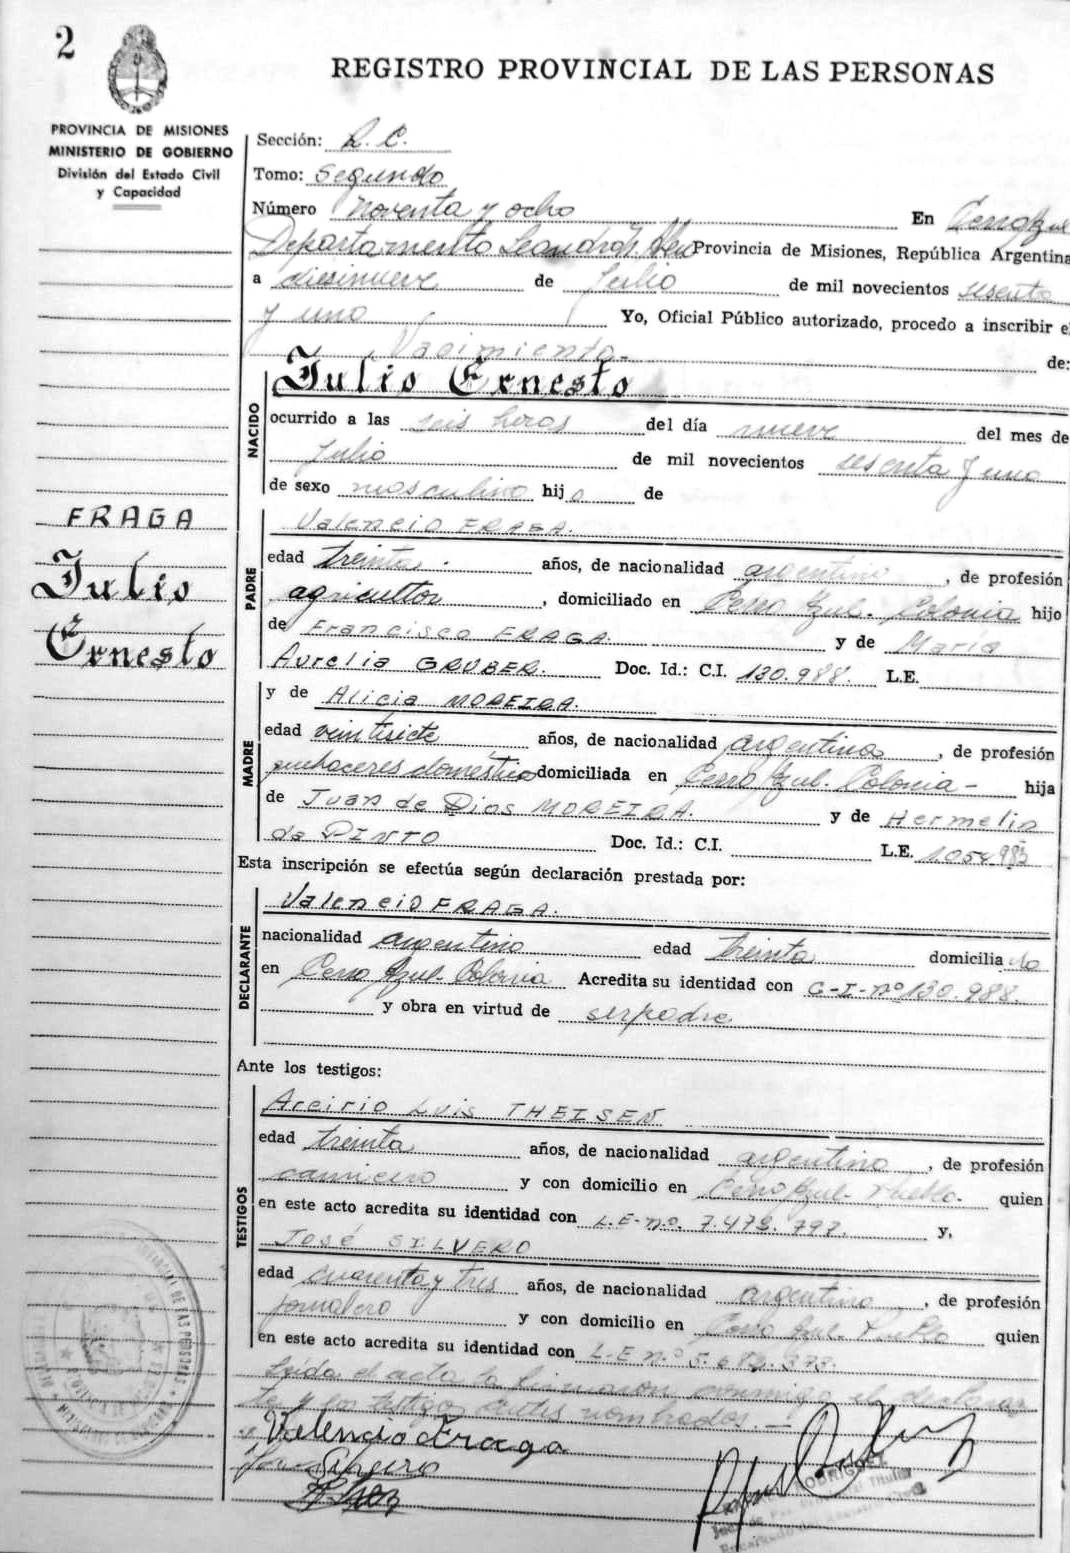 2
REGISTRO PROVINCIAL DE LAS PERSONAS
PROVINCIA DE MISIONES
MINISTERIO DE GOBIERNO
División del Estado Civil
y Capacidad
Sección: R. C.
Tomo: Segundo
Número Noventa y ocho En Cerro Azul
Departamento Leandro N. Alem Provincia de Misiones, República Argentina
a diesinueve de Julio de mil novecientos sesenta
y uno Yo, Oficial Público autorizado, procedo a inscribir el
Nacimiento- de:
NACIDO
Julio Ernesto
ocurrido a las seis horas del día nueve del mes de
Julio de mil novecientos sesenta y uno
de sexo masculino hijo de
FRAGA
Julio
Ernesto
PADRE
Valencio FRAGA.
edad treinta. años, de nacionalidad argentino, de profesión
agricultor, domiciliado en Cerro Azul. Colonia hijo
de Francisco FRAGA. y de María
Aurelia GRUBER. Doc. Id.: C.I. 130.988. L.E.
MADRE
y de Alicia MOREIRA.
edad veintisiete años, de nacionalidad argentina, de profesión
domiciliada en Cerro Azul. Colonia- hija
de Juan de Dios MOREIRA. y de Hermelin
da PINTO Doc. Id.: C.I. L.E.
Esta inscripción se efectúa según declaración prestada por:
DECLARANTE
Valencio FRAGA.
nacionalidad argentino edad treinta domiciliado
en Cerro Azul. Colonia Acredita su identidad con C-I-nº 130.988.
y obra en virtud de ser padre
Ante los testigos:
TESTIGOS
Arcirio Luis THEISEN
edad treinta años, de nacionalidad argentino, de profesión
carnicero y con domicilio en Cerro Azul- Pueblo. quien
en este acto acredita su identidad con L.E-nº. 7.473.797. y,
José SILVERO
edad cuarenta y tres años, de nacionalidad argentino, de profesión
jornalero y con domicilio en Cerro Azul- Pueblo quien
en este acto acredita su identidad con L-E nº
Leída el acta la firmaron conmigo el declaran
te y los testigos antes nombrados.-
Valencio Fraga
Silvero